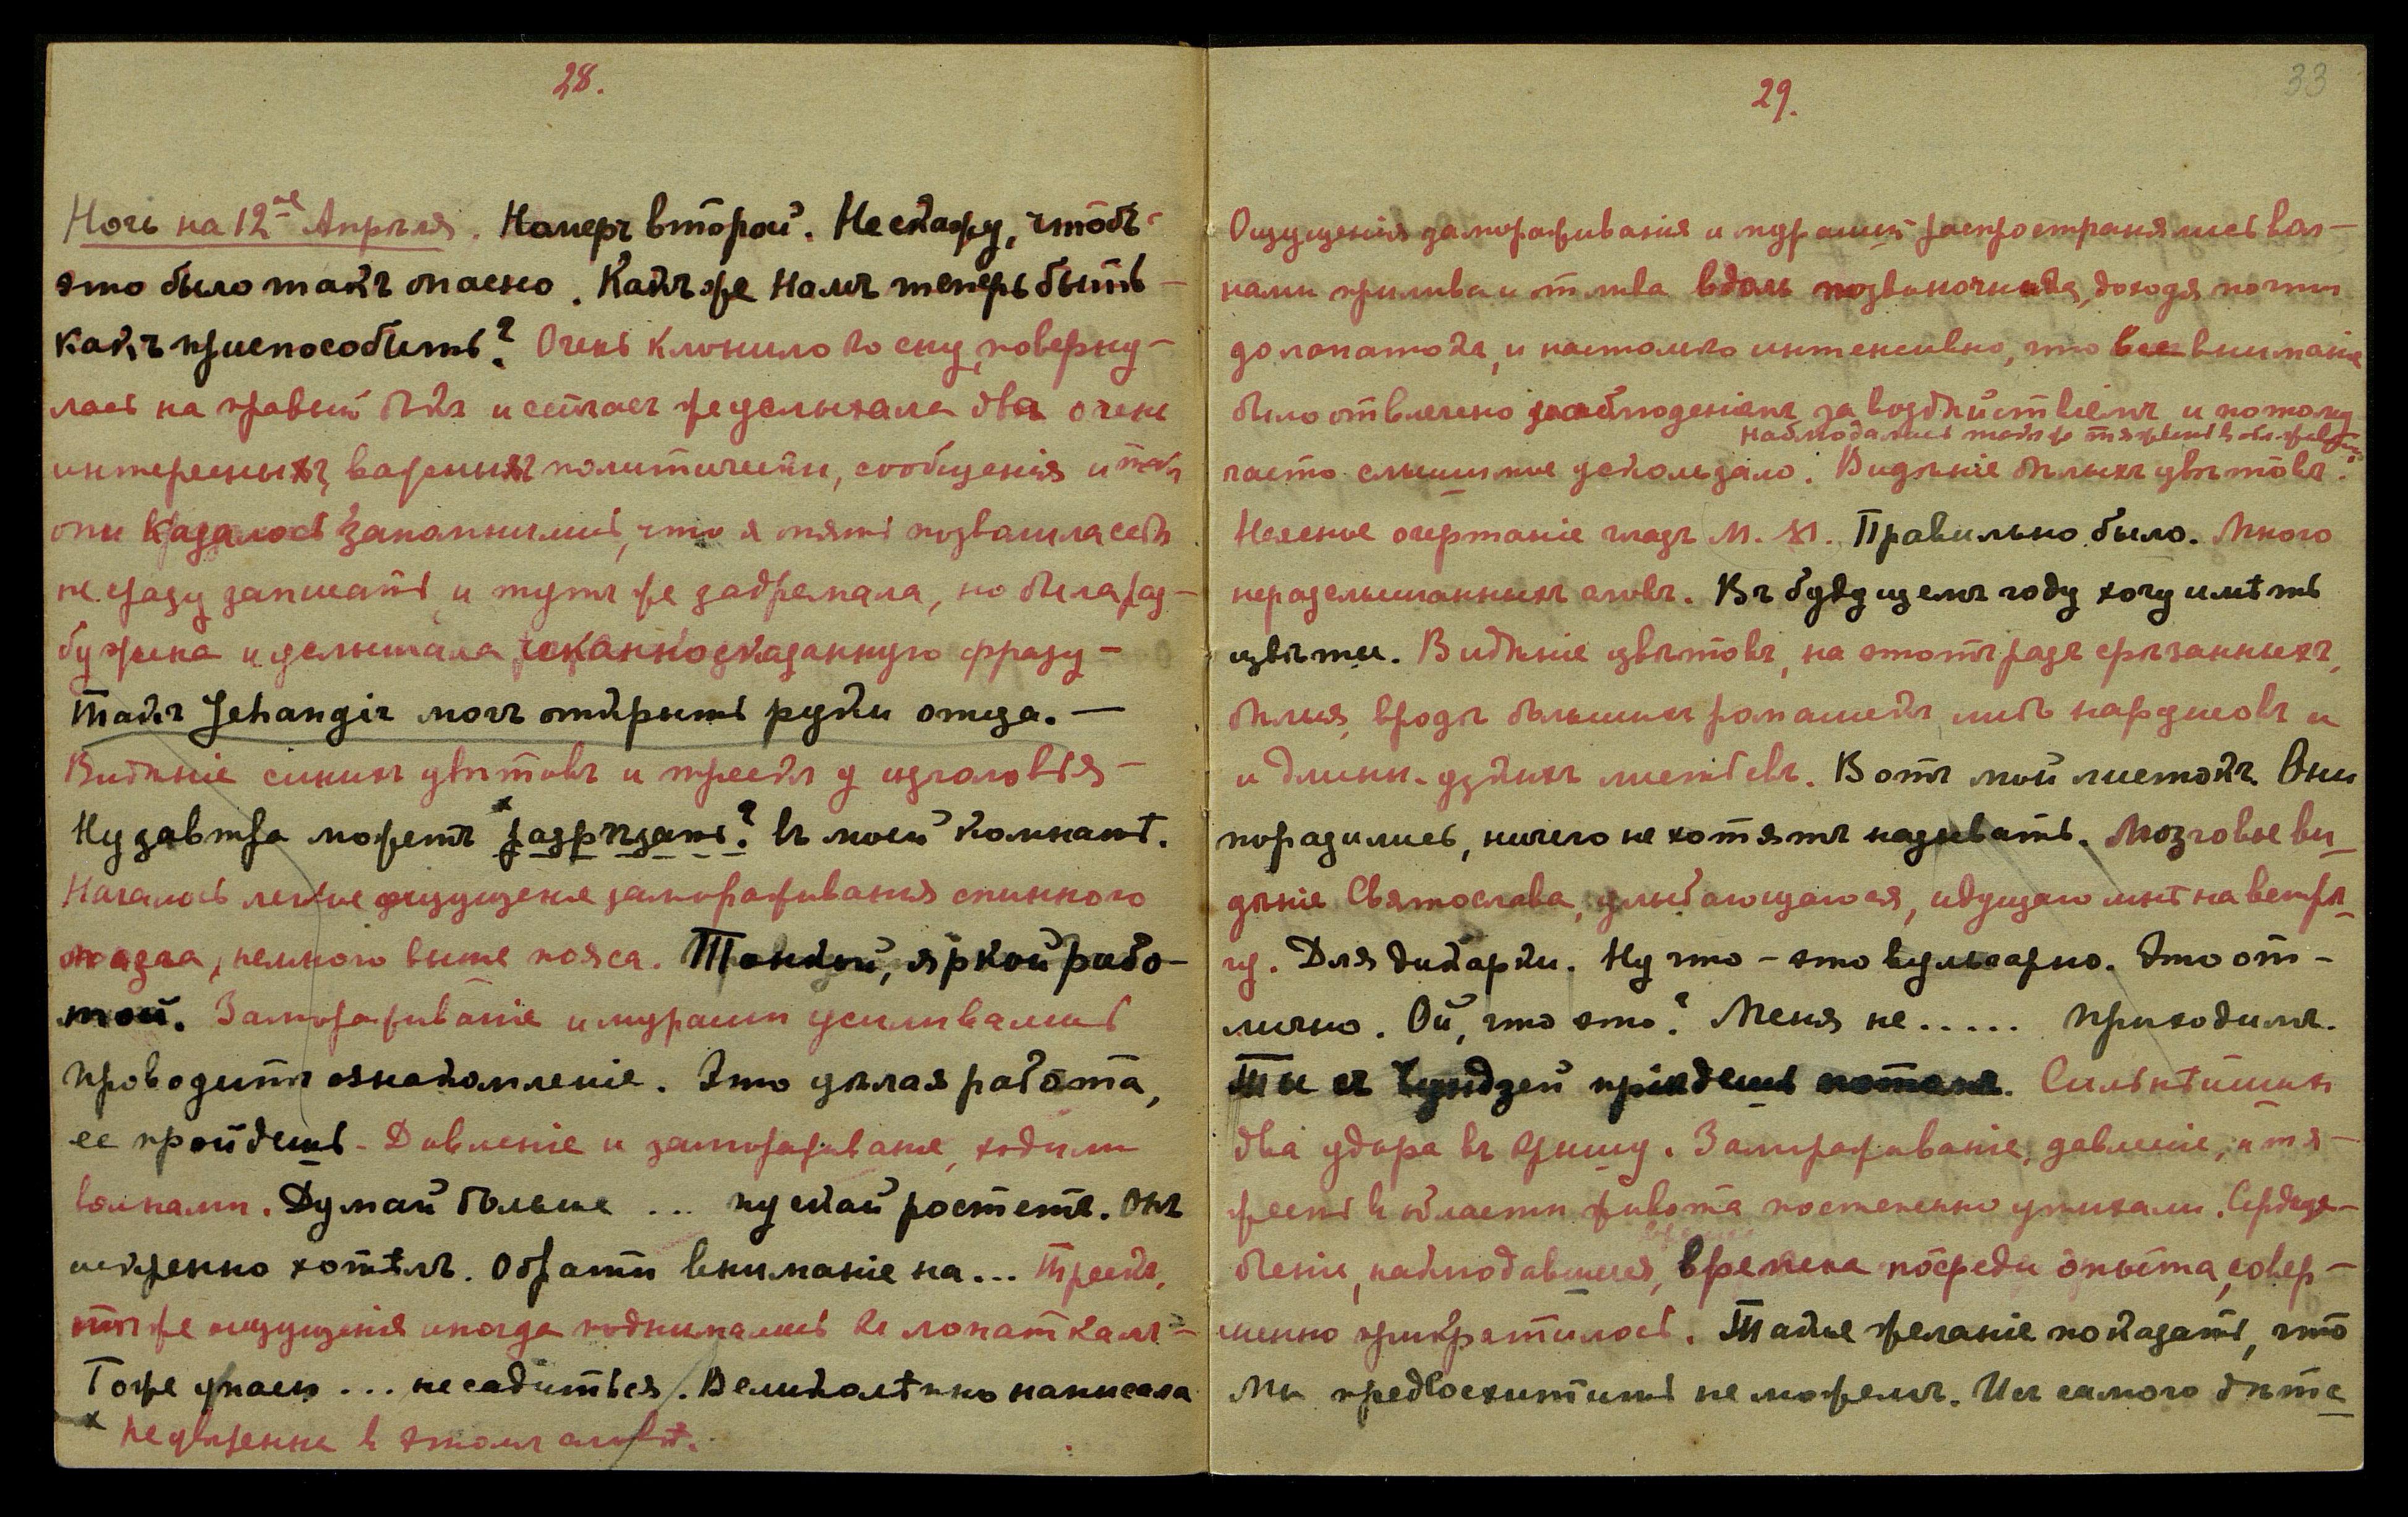 28.
Ночь на 12ое Апрѣля. Номеръ второй. Не скажу, чтобъ
это было такъ опасно. Какъ же намъ теперь быть —
какъ приспособить? Очень клонило ко сну, поверну-
лась на правый бокъ и сейчасъ же услыхала два очень
интересныхъ, важныхъ политически, сообщенія и такъ
они казалось запомнились, что я опять позволила себѣ
не сразу записать и тутъ же задремала, но была раз-
бужена и услышала чеканно сказанную фразу —
Такъ Jehangir могъ открыть руки отца. —
Видѣніе синихъ цвѣтовъ и трескъ у изголовья —
Ну завтра можетъ ˣразрѣзать? въ моей комнатѣ.
Началось легкое ощущеніе замораживанія спинного
мозга, немного выше пояса. Тонкой, яркой рабо-
той. Замораживаніе и мурашки усиливались
проводить ознакомленіе. Это цѣлая работа,
ее пройдешь - Давленіе и замораживаніе, ходили
волнами. Думай больше ... пускай ростетъ. Онъ
искренно хотѣлъ. Обрати вниманіе на... Трескъ,
тѣ же ощущенія иногда поднимались къ лопаткамъ —
Тоже знаешь ... не садиться. Великолѣпно написала
ˣ не увѣрена въ этомъ словѣ.
29.
33
Ощущенія замораживанія и мурашки распространялись вол-
нами прилива и отлива вдоль позвоночника, доходя почти
до лопатокъ, и настолько интенсивно, что все вниманіе
было отвлечено наблюденіемъ за воздѣйствіемъ и потому
наблюдались также тяжесть въ животѣ
часто слышимое ускользало. Видѣніе бѣлыхъ цвѣтовъ.
Неясное очертаніе глазъ М. М. Правильно было. Много
неразслышанныхъ словъ. Въ будущемъ году хочу имѣть
цвѣты. Видѣніе цвѣтовъ, на этотъ разъ срѣзанныхъ,
бѣлыя, вродѣ большихъ ромашекъ либо нарцисовъ и
и длинн. узкихъ листьевъ. Вотъ мой листокъ. Они
поразились, ничего не хотятъ называть. Мозговые ви-
дѣніе Святослава, улыбающагося, идущаго мнѣ на встрѣ-
чу. Для дикарки. Ну что - это вульгарно. Это от-
лично. Ой, что это? Меня не ..... приходилъ.
Ты съ Чундзей пріѣдешь потомъ. Сильнѣйшихъ
два удара въ крышу. Замораживаніе, давленіе, и тя-
жесть въ области живота постепенно утихали. Сердце-
біеніе, наблюдавшееся, времена посреди опыта, совер-
шенно прекратилось. Такое желаніе показать, что
мы предвосхитить не можемъ. Изъ самого дѣтс-